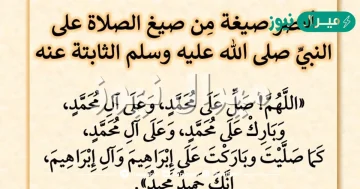 ميراث نيوز
صيغة مِن صيغ الصلاة على
النبيِّ صلى الله عليه وسلم الثابتة عنه
«اللَّهُمَّ! صَلِّ عَلَى مُحَمَّدٍ، وَعَلَى آلِ مُحَمَّدٍ،
وَبَارِكْ عَلَى مُحَمَّدٍ، وَعَلَى آلِ مُحَمَّدٍ،
كَمَا صَلَّيْتَ وَبَارَكْتَ عَلَى إِبْرَاهِيمَ وَآلِ إِبْرَاهِيمَ،
إِنَّكَ حَمِيدٌ مَجِيدٌ».